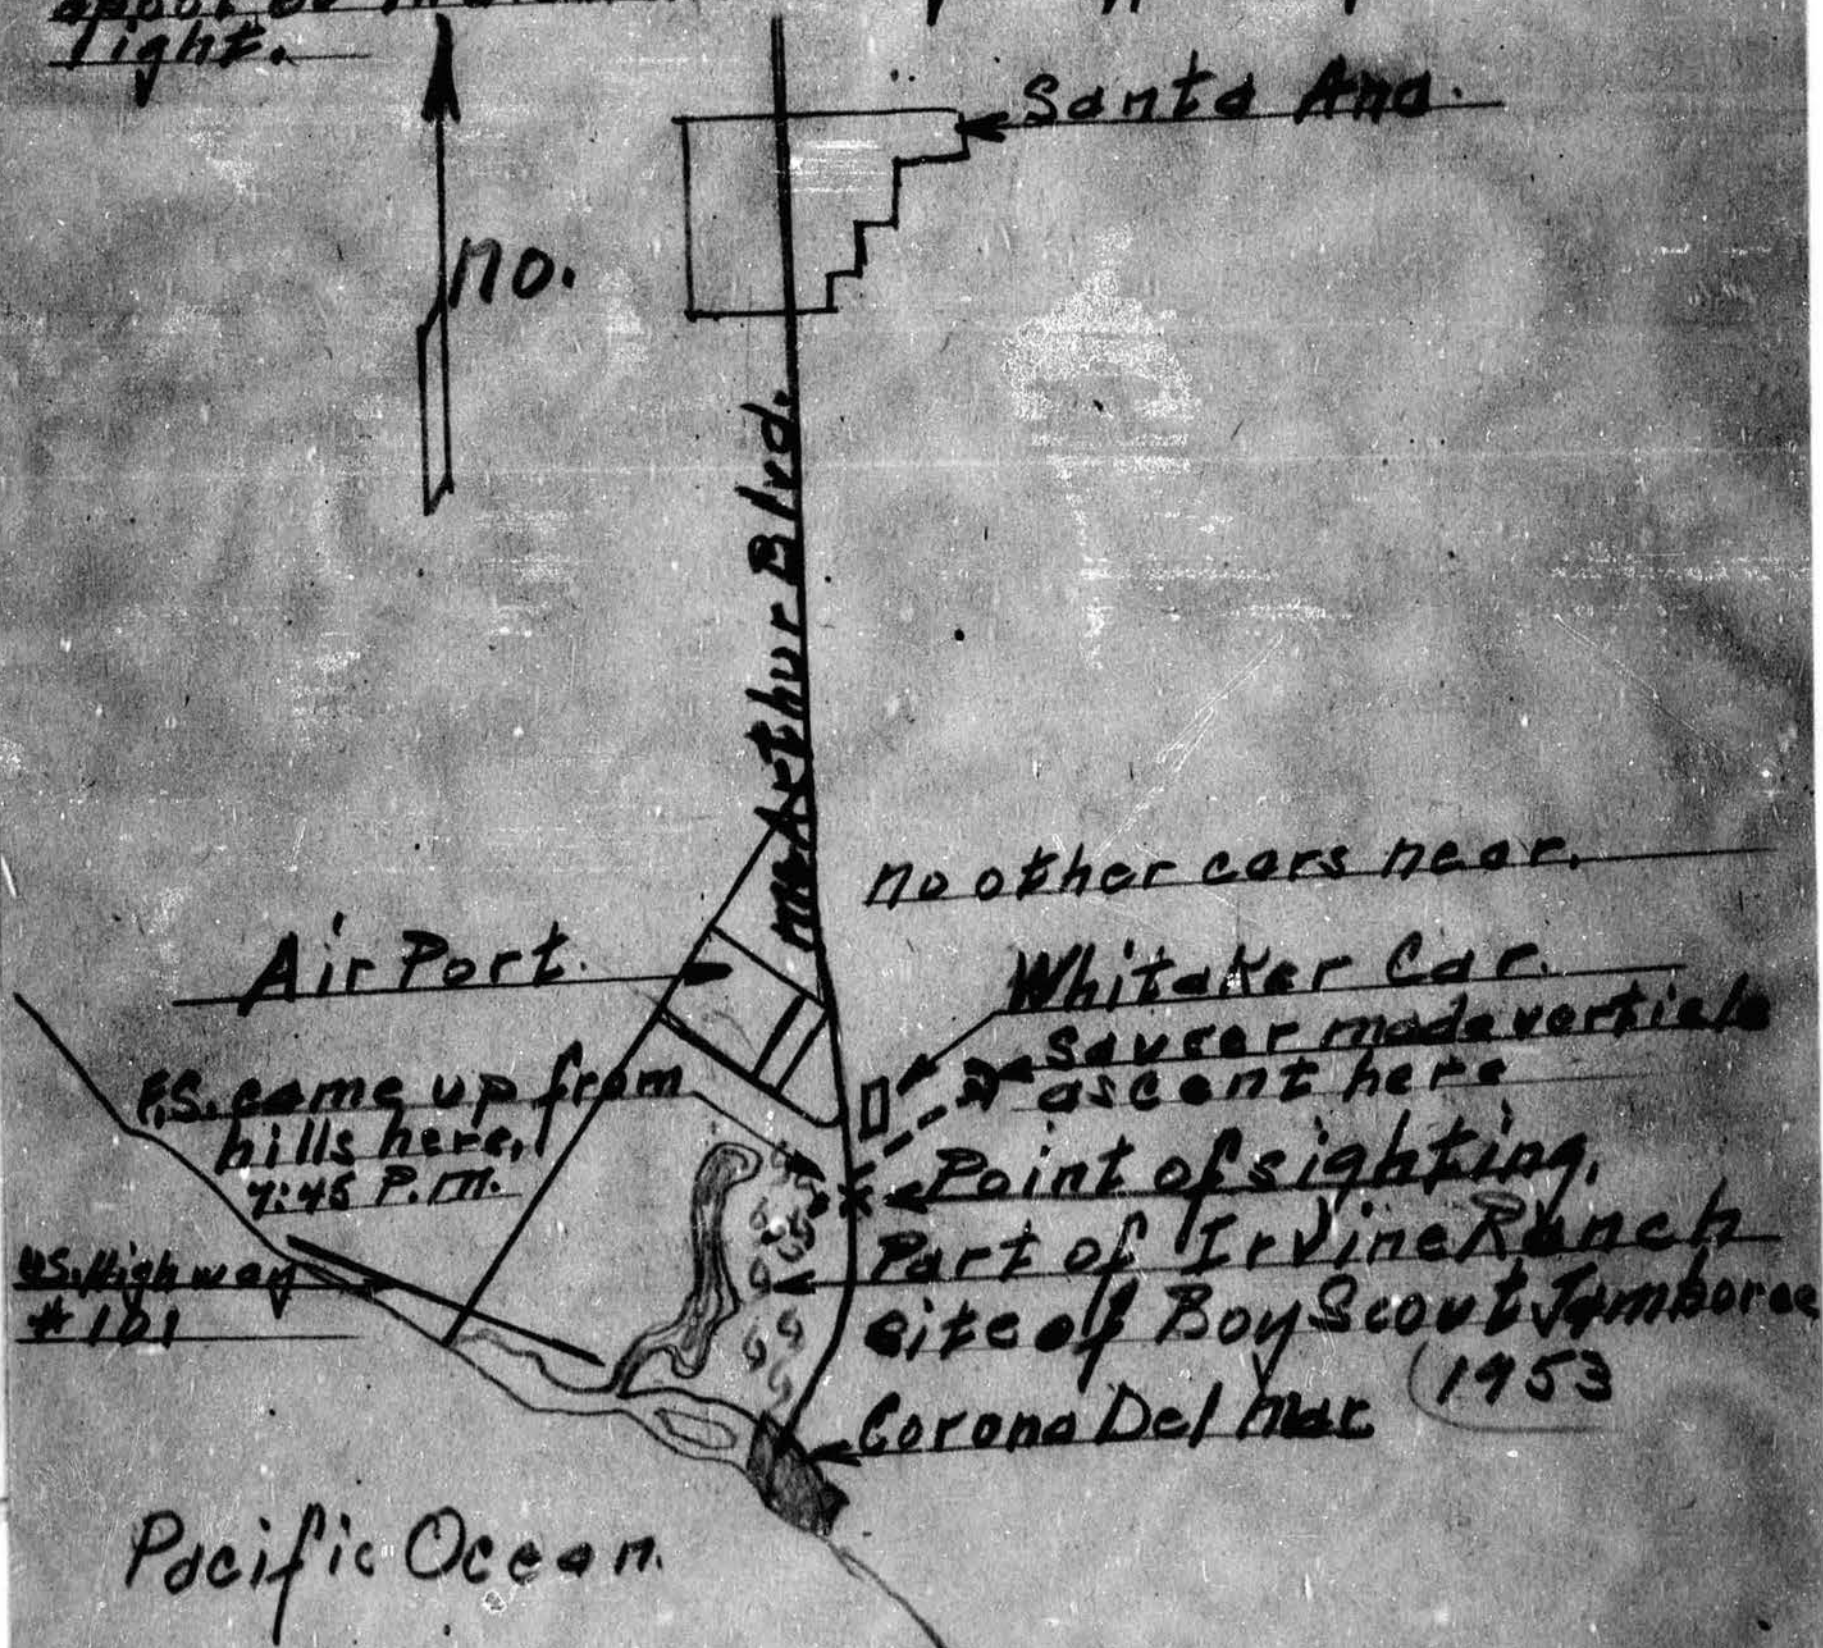 light.
Santa Ana.
no.
McArthur Blvd.
no other cars near.
Air Port.
Whitaker Car.
saucer made verticle
ascent here
F.S. came up from
hills here,
7:45 P.M.
Point of sighting.
Part of Irvine Ranch
site of Boy Scout Jamboree
1953
U.S. Highway
#101
Corona Del Mar
Pacific Ocean.